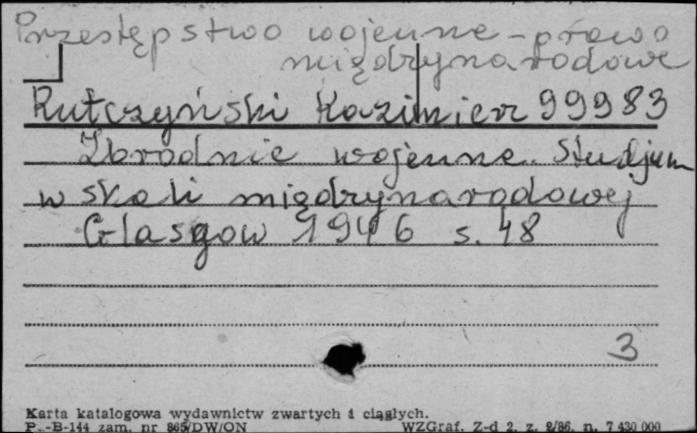 Przestępstwo wojenne - prawo
międzynarodowe
Rutczyński Kazimierz 99983
Zbrodnie wojenne. Studjum
w skali międzynarodowej
Glasgow 1946 s. 48
3
Karta katalogowa wydawnictw zwartych i ciągłych.
P.-B-144 zam. nr 865/DW/ON WZGraf. Z-d 2. z. 2/86. n. 7 430 000